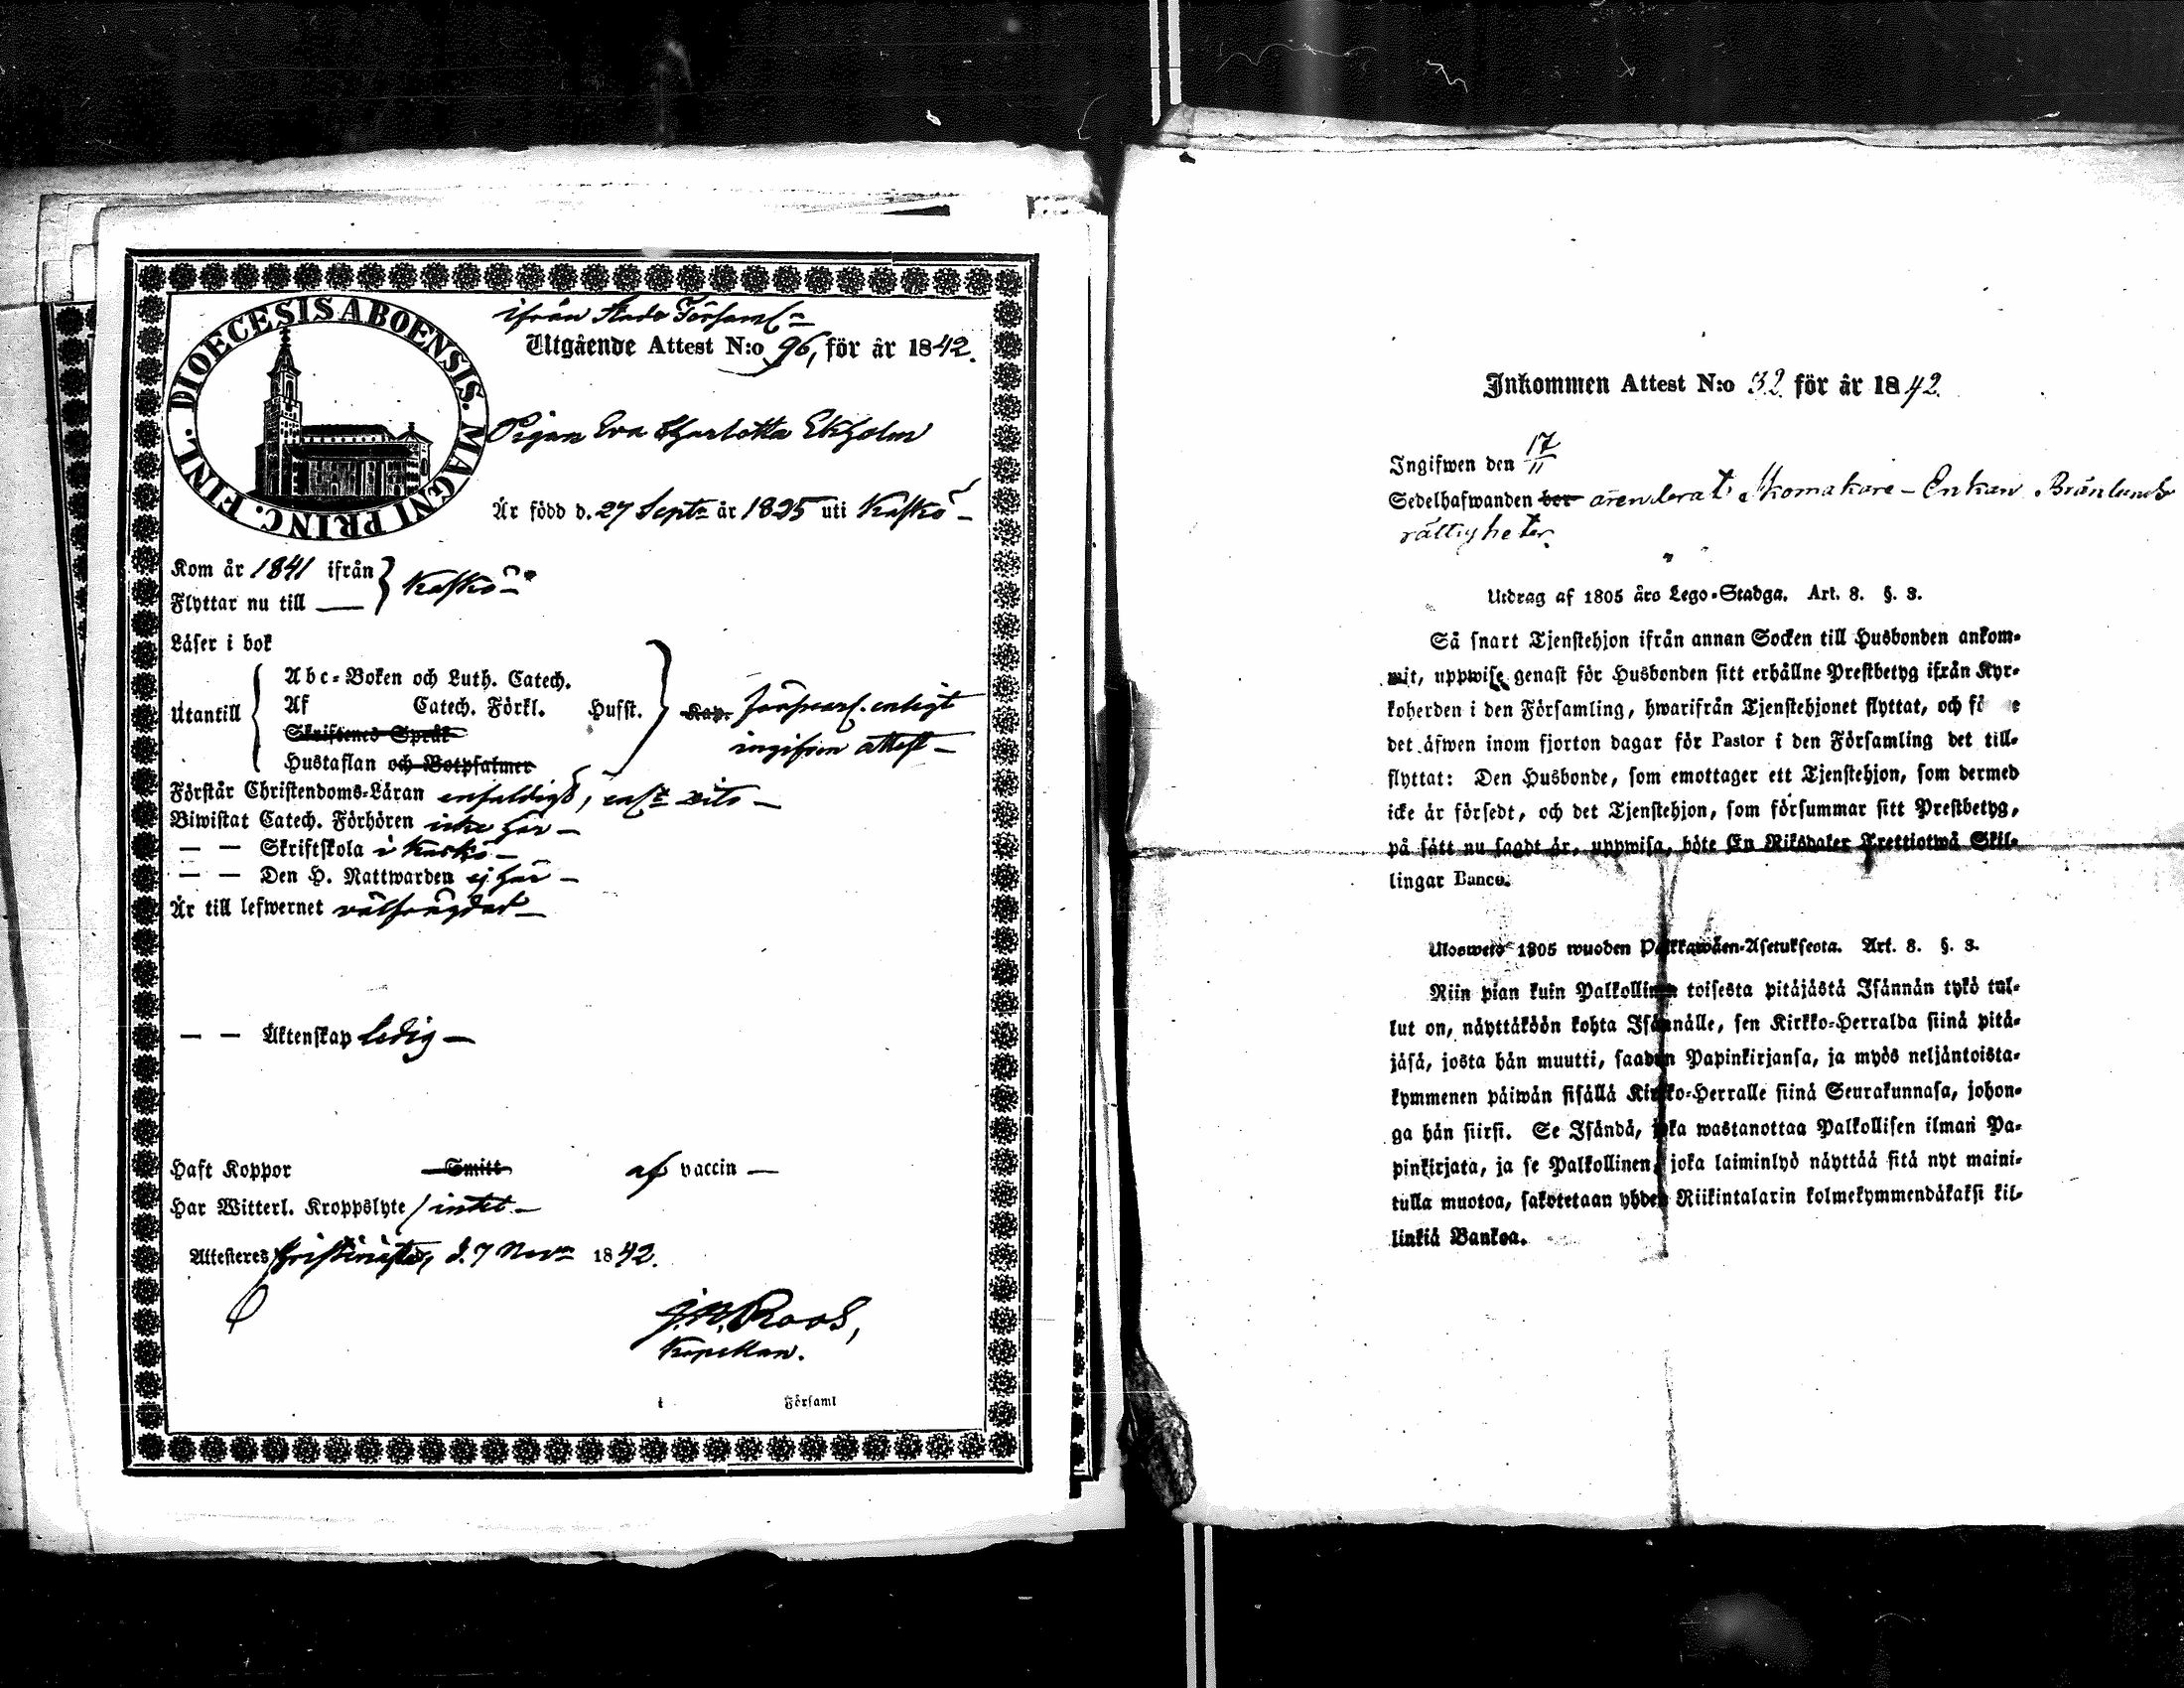 DIOECESIS ABOENSIS. MAGNI PRINC. FINL.
ifrån Stads Församl:
Utgående Attest N:o 96, för år 1842.
Pigan Eva Charlotta Ekholm
År född d. 27 Sept: år 1825 uti Kaskö
Kom år 1841 ifrån } Kaskö
Flyttar nu till —
Läser i bok
Abc-Boken och Luth. Catech.
Utantill { Af Catech. Förkl. Hufst. } Kap. enligt
Skriftenes Språk
ingifven attest —
Hustaflan och Botpsalmer
Förstår Christendoms-Läran enfaldigt,
Biwistat Catech. Förhören icke här —
— — Skriftskola i Kaskö —
— — Den H. Nattwarden ej här —
Är till lefwernet välfrägdad —
— — Äktenskap ledig —
Haft Koppor Smitt af vaccin —
Har Witterl. Kroppslyte / intet —
Attesteres Christinestad, d. 7 Nov: 1842.
Roos,
Kapellan.
i Församl
Inkommen Attest N:o 32 för år 1842.
Ingifwen den 17/11
Sedelhafwanden ber arenderat Skomakare-Enkan Brönlunds
rättigheter.
Utdrag af 1805 års Lego-Stadga. Art. 8. §. 3.
Så snart Tjenstehjon ifrån annan Socken till Husbonden ankom-
mit, uppwise genast för Husbonden sitt erhållne Prestbetyg ifrån Kyr-
koherden i den Församling, hwarifrån Tjenstehjonet flyttat, och
det äfwen inom fjorton dagar för Pastor i den Församling det till-
flyttat: Den Husbonde, som emottager ett Tjenstehjon, som dermed
icke är försedt, och det Tjenstehjon, som försummar sitt Prestbetyg,
på sätt nu sagdt är, uppwisa, böte En Riksdaler Trettiotwå Skil-
lingar Banco.
Ulosweto 1805 wuoden Palkkawäen-Asetuksesta. Art. 8. §. 3.
Niin pian kuin Palkollinen toisesta pitäjästä Isännän tykö tul-
lut on, näyttäköön kohta Isännälle, sen Kirkko-Herralda siinä pitä-
jäsä, josta hän muutti, saadun Papinkirjansa, ja myös neljäntoista-
kymmenen päiwän sisällä Kirkko-Herralle siinä Seurakunnasa, johon-
ga hän siirsi. Se Isändä, joka wastanottaa Palkollisen ilman Pa-
pinkirjata, ja se Palkollinen, joka laiminlyö näyttää sitä nyt maini-
tulla muotoa, sakotetaan yhden Riikintalarin kolmekymmendäkaksi kil-
linkiä Bankoa.